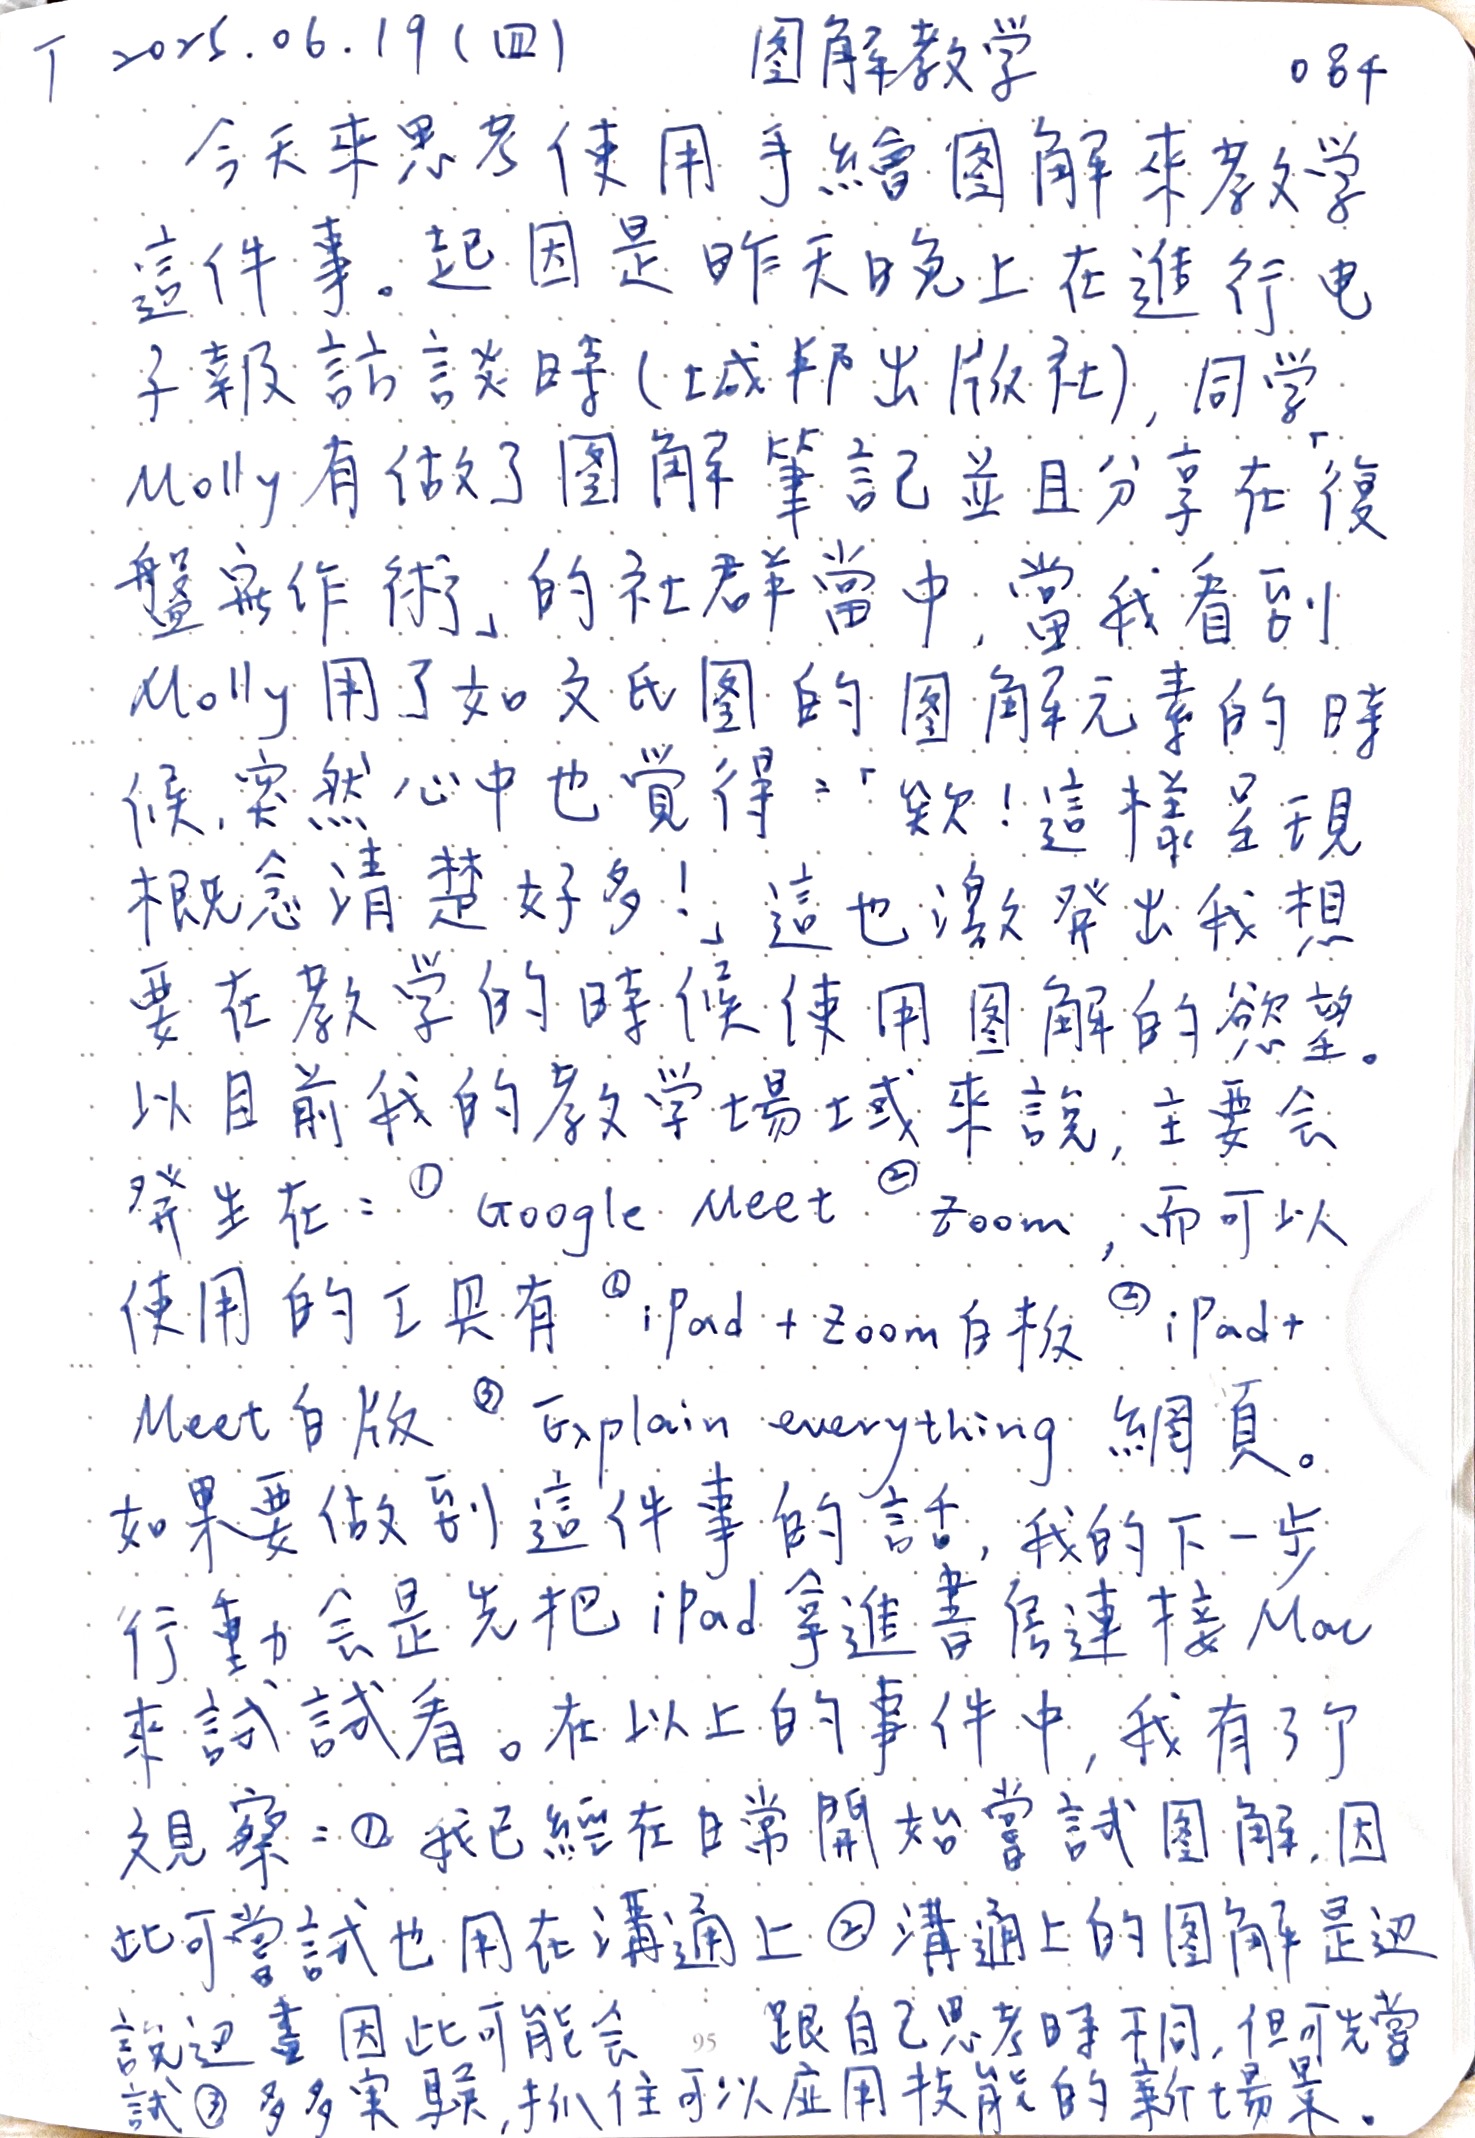 T 2025.06.19(四) 图解教学 084
今天來思考使用手繪图解來教学
這件事。起因是昨天晚上在進行电
子報訪談時(城邦出版社),同学
Molly有做了图解筆記並且分享在「復
盤寫作術」的社群當中,當我看到
Molly用了如文氏图的图解元素的時
候,突然心中也覺得:「欸!這樣呈現
概念清楚好多!」這也激發出我想
要在教学的時候使用图解的慾望。
以目前我的教学場域來說,主要会
發生在:① Google Meet ② Zoom,而可以
使用的工具有①iPad+Zoom白板②iPad+
Meet白版③Explain everything 網頁。
如果要做到這件事的話,我的下一步
行動会是先把iPad拿進書房連接Mac
來試試看。在以上的事件中,我有了了
观察:①我已經在日常開始嘗試图解,因
此可嘗試也用在溝通上②溝通上的图解是边
說边畫因此可能会 跟自己思考時不同,但可先嘗
試③多多実驗,抓住可以应用技能的新場景。
95